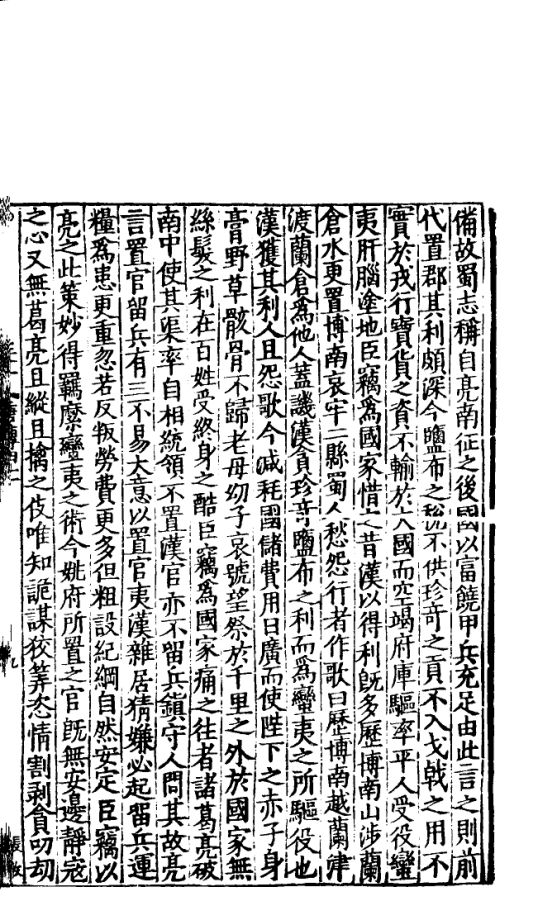 備故蜀志稱自亮南征之後國以富饒甲兵充足由此言之則前
代置郡其利頗深今鹽布之稅不供珍奇之貢不入戈戟之用不
實於戎行寶貨之資不輸於大國而空竭府庫驅率平人受役蠻
夷肝腦塗地臣竊為國家惜之昔漢以得利既多歷博南山涉蘭
倉水更置博南哀牢二縣蜀人愁怨行者作歌曰歷博南越蘭津
渡蘭倉為他人蓋譏漢貪珍奇鹽布之利而為蠻夷之所驅役也
漢獲其利人且怨歌今減耗國儲費用日廣而使陛下之赤子身
膏野草骸骨不歸老母幼子哀號望祭於千里之外於國家無
絲髮之利在百姓受終身之酷臣竊為國家痛之往者諸葛亮破
南中使其渠率自相統領不置漢官亦不留兵鎮守人問其故亮
言置官留兵有三不易大意以置官夷漢雜居猜嫌必起留兵運
糧為患更重忽若反叛勞費更多但粗設紀綱自然安定臣竊以
亮之此策妙得羈縻蠻夷之術今姚府所置之官既無安邊靜寇
之心又無葛亮且縱且擒之伎唯知詭謀狡筭恣情割剥貪叨刧